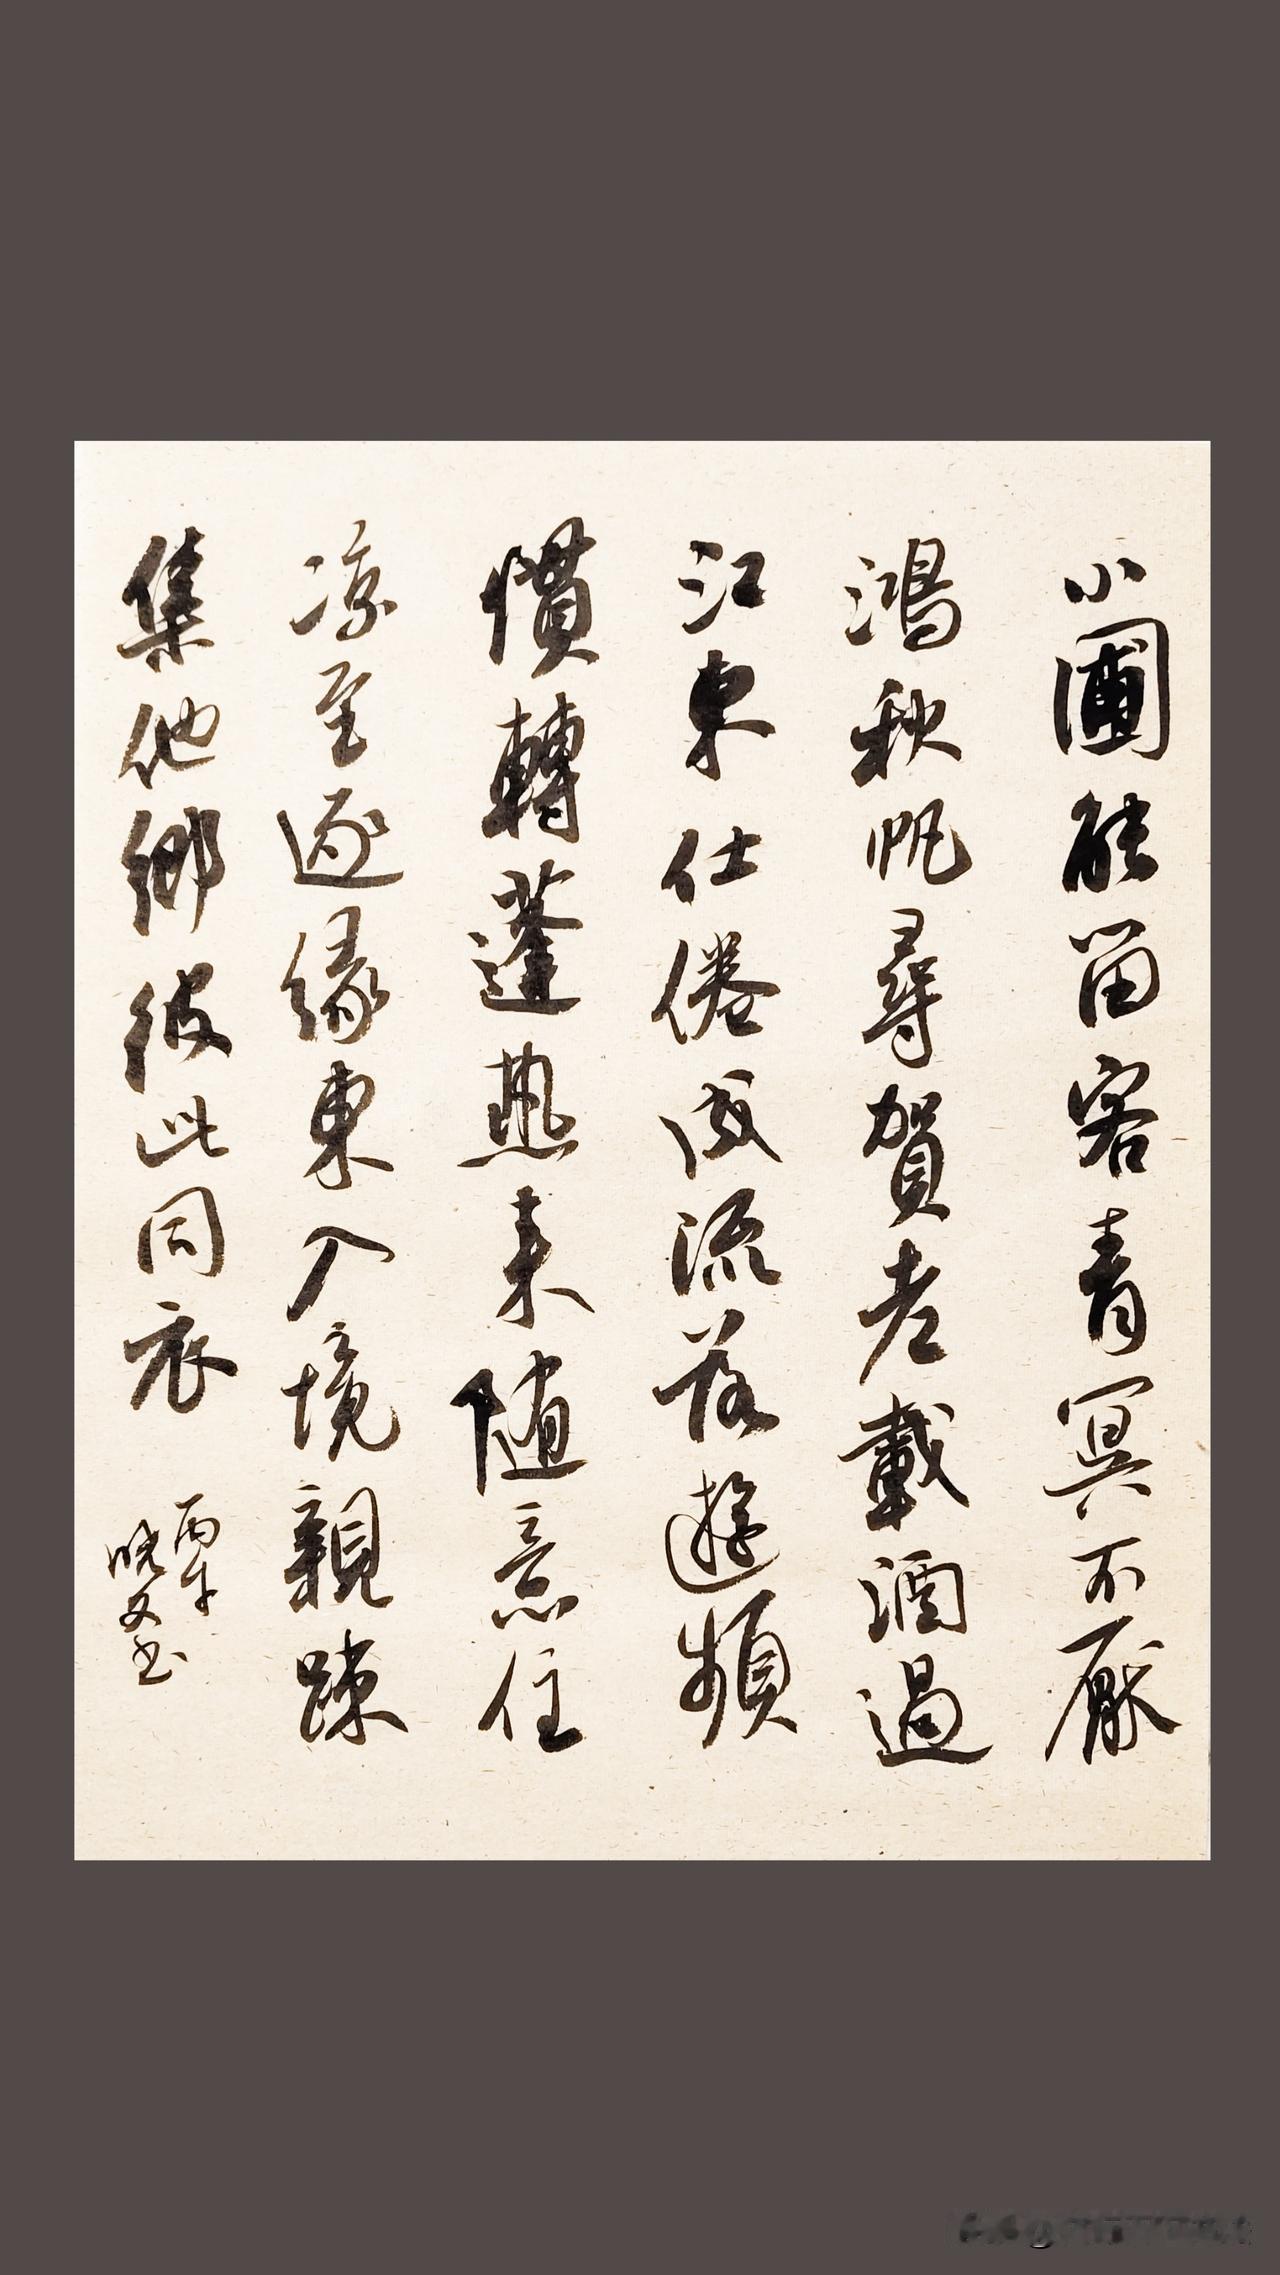 小圃能留客青冥不厭
鴻秋帆尋賀老載酒過
江東仕倦成流落遊頻
慣轉蓬熱來隨意住
涼至逐緣東入境親疎
集他鄉彼此同衣
丙午
曉文书